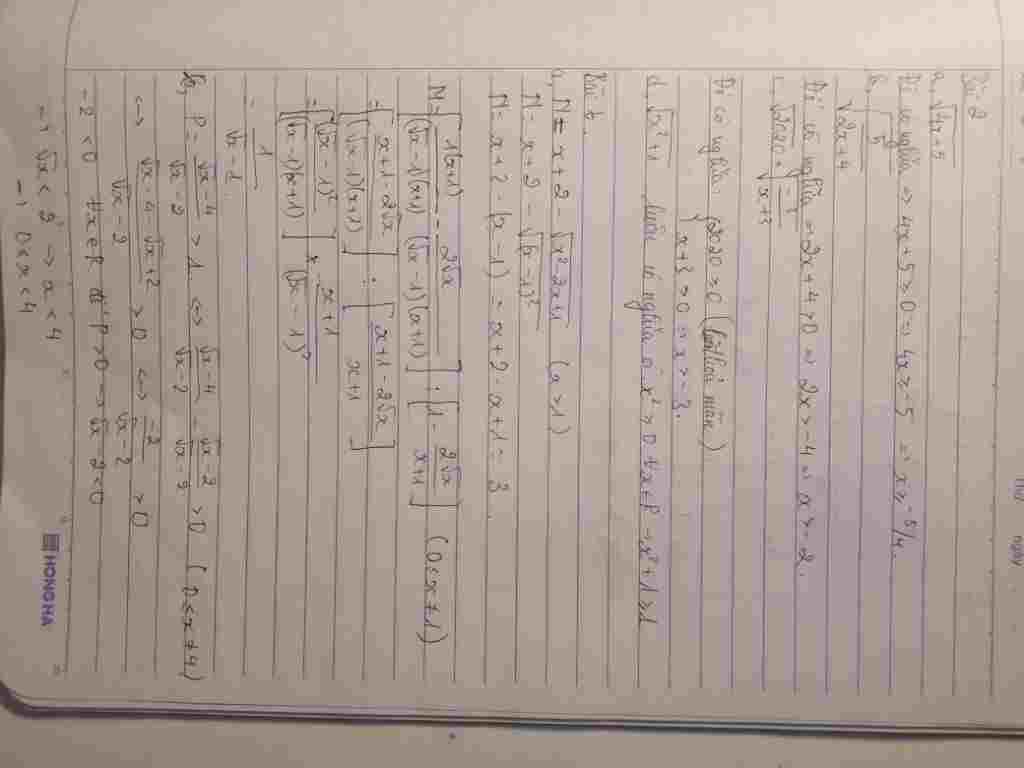 Thứ ngày
Bài 2
a, √4x+5
Để có nghĩa => 4x+5 ≥ 0 => 4x ≥ -5 => x ≥ -5/4.
b, √(5/√2x+4)
Để có nghĩa => 2x+4 > 0 => 2x > -4 => x > -2.
c, √2020 +
√x+3
Để có nghĩa 2020 ≥ 0 (luôn thoả mãn)
x+3 > 0 => x > -3.
d, √x²+1 luôn có nghĩa vì x² ≥ 0 ∀x∈R → x²+1 ≥ 1
Bài
a, N = x + 2 - √x²-2x+1 (x > 1)
N = x + 2 - √(x-1)²
N = x + 2 - (x-1) = x + 2 - x + 1 = 3.
N = [1(x+1)/(√x-1)(x+1) - 2√x/(√x-1)(x+1)] : [1 - 2√x/x+1] (0 ≤ x ≠ 1)
= [x+1-2√x/(√x-1)(x+1)] : [x+1-2√x/x+1]
= [(√x-1)²/(√x-1)(x+1)] × x+1/(√x-1)²
= 1/√x-1
b, P = √x-4/√x-2 > 1 <=> √x-4/√x-2 - √x-2/√x-2 > 0 (0 ≤ x ≠ 4)
<=> √x-4-√x+2/√x-2 > 0 <=> -2/√x-2 > 0
-2 < 0 ∀x∈R để P > 0 => √x-2 < 0
→ √x < 2 → x < 4
→ 0 ≤ x < 4
HONG HA